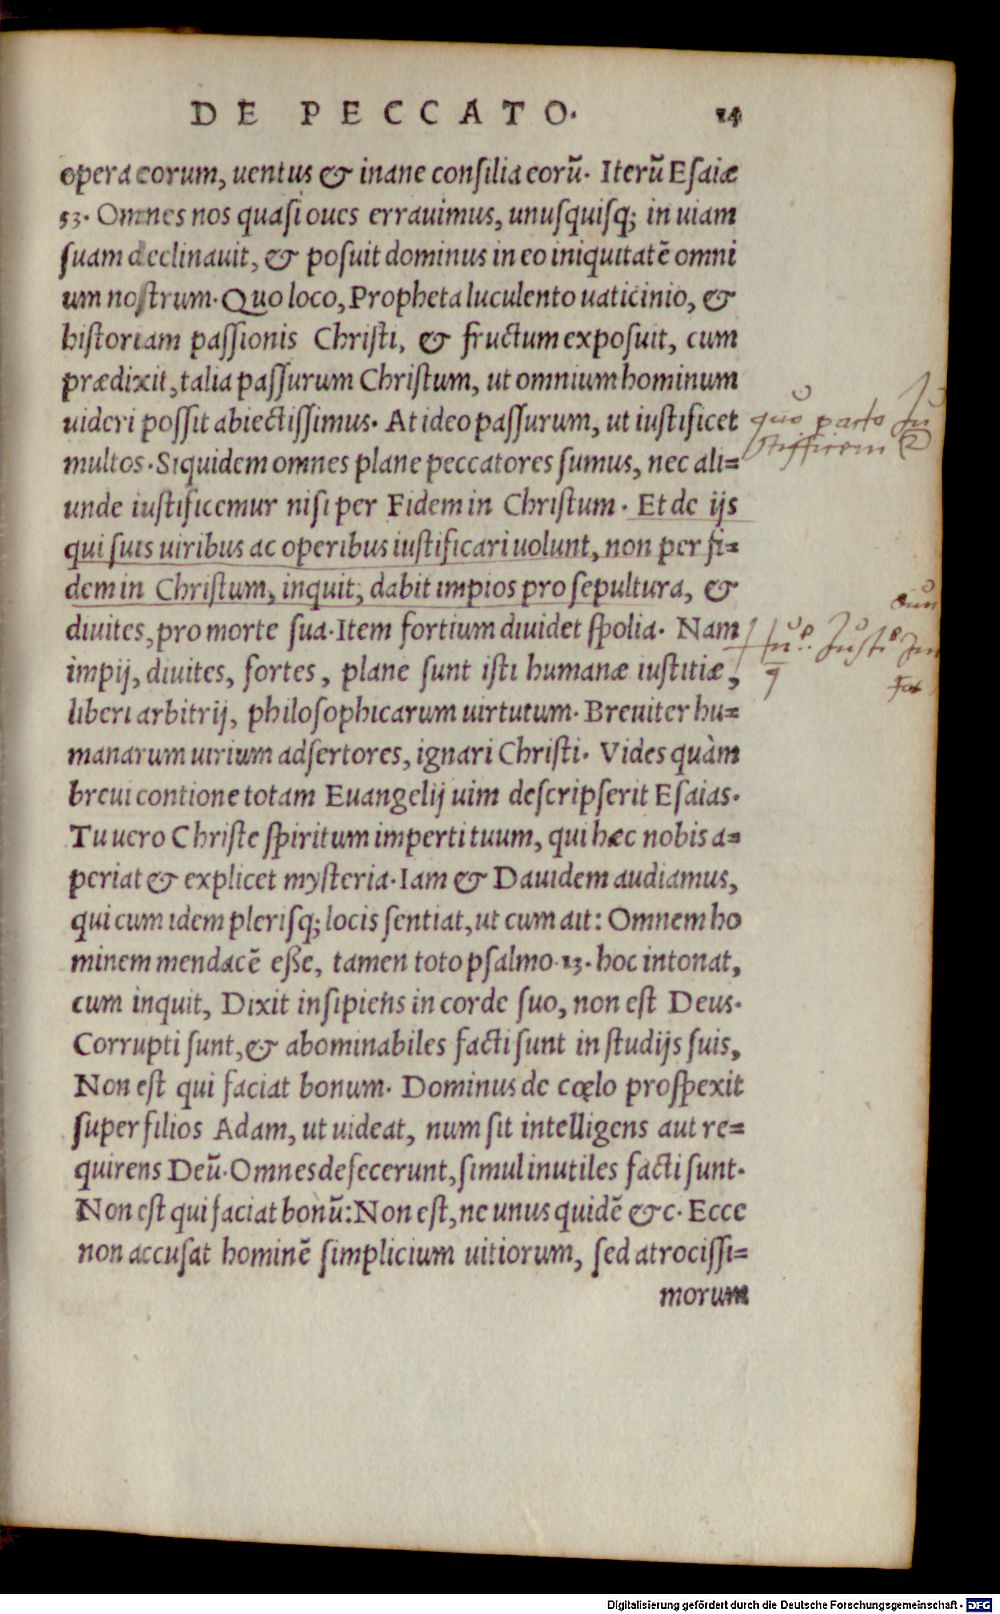 DE PECCATO. 14
opera eorum, uentus & inane consilia eorũ. Iterũ Esaiæ
53. Omnes nos quasi oues errauimus, unusquisq; in uiam
suam declinauit, & posuit dominus in eo iniquitatẽ omni
um nostrum. Quo loco, Propheta luculento uaticinio, &
historiam passionis Christi, & fructum exposuit, cum
prædixit, talia passurum Christum, ut omnium hominum
uideri possit abiectissimus. At ideo passurum, ut iustificet
multos. Siquidem omnes plane peccatores sumus, nec ali=
unde iustificemur nisi per Fidem in Christum. Et de ijs
qui suis uiribus ac operibus iustificari uolunt, non per fi=
dem in Christum, inquit, dabit impios pro sepultura, &
diuites, pro morte sua. Item fortium diuidet spolia. Nam
impij, diuites, fortes, plane sunt isti humanæ iustitiæ,
liberi arbitrij, philosophicarum uirtutum. Breuiter hu=
manarum uirium adsertores, ignari Christi. Vides quàm
breui contione totam Euangelij uim descripserit Esaias.
Tu uero Christe spiritum imperti tuum, qui hæc nobis a=
periat & explicet mysteria. Iam & Dauidem audiamus,
qui cum idem plerisq; locis sentiat, ut cum ait: Omnem ho
minem mendacẽ esse, tamen toto psalmo .13. hoc intonat,
cum inquit, Dixit insipiens in corde suo, non est Deus.
Corrupti sunt, & abominabiles facti sunt in studijs suis,
Non est qui faciat bonum. Dominus de cœlo prospexit
super filios Adam, ut uideat, num sit intelligens aut re=
quirens Deũ. Omnes defecerunt, simul inutiles facti sunt.
Non est qui faciat bonũ: Non est, ne unus quidẽ &c. Ecce
non accusat hominẽ simplicium uitiorum, sed atrocissi=
morum
quo pacto
Digitalisierung gefördert durch die Deutsche Forschungsgemeinschaft - DFG